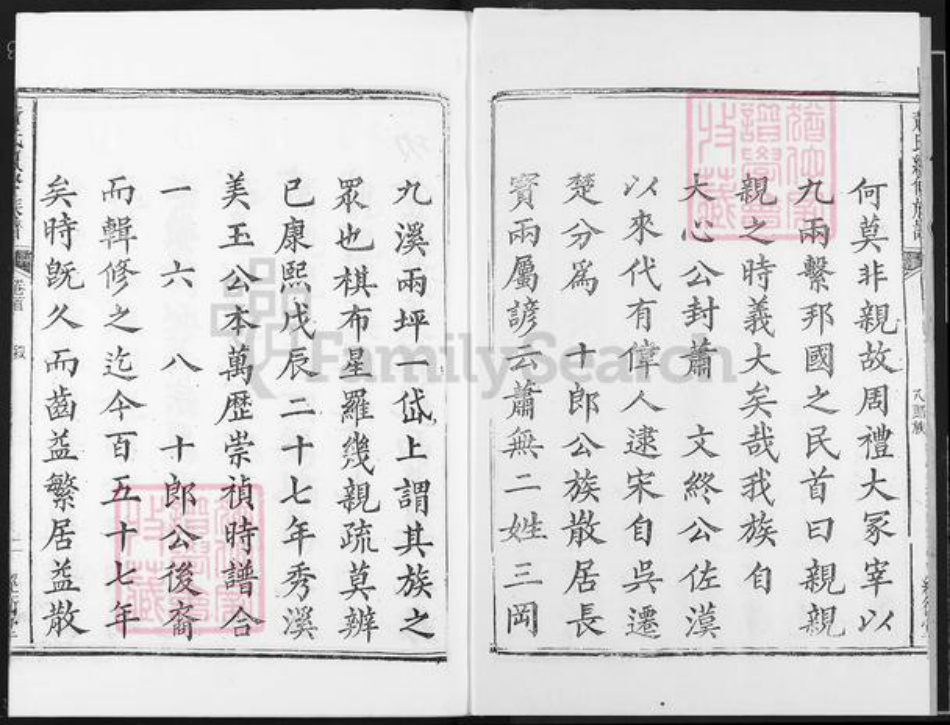 何莫非親故周禮大冢宰以
九兩繫邦國之民首曰親親
親之時義大矣哉我族自
大心公封蕭 文終公佐漢
以來代有偉人逮宋自吳遷
楚分爲 十郎公族散居長
寶兩屬諺云蕭無二姓三岡
九溪兩坪一岱上謂其族之
眾也棋布星羅幾親疏莫辨
已康熙戊辰二十七年秀溪
美玉公本萬歷崇禎時譜合
一六八 十郎公後裔
而輯修之迄今百五十七年
矣時既久而齒益繁居益散
卷首
叙
FamilySearch